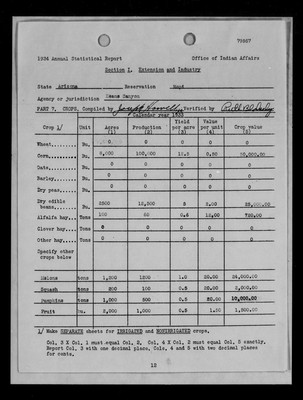 70667
1934 Annual Statistical Report Office of Indian Affairs
Section I. Extension and Industry
State Arizona Reservation Hopi
Agency or jurisdiction Keams Canyon
PART 7. CROPS, Compiled by Verified by
Calendar year 1933
Crop 1/ Unit Acres Production Yield per acre Value per unit Crop value
(1) (2) (3) (4)
Wheat Bu. 0 0 0 0 0
Corn Bu. 100,000 0.50 50,000.00
Oats Bu. 0 0 0 0 0
Barley Bu. 0 0 0 0 0
Dry peas Bu. 0 0 0 0 0
Dry edible beans Bu. 2500 12,500 5 2.00
Alfalfa hay Tons 100 50 0.5 15.00 750.00
Clover hay Tons 0 0 0 0 0
Other hay Tons 0 0 0 0 0
Specify other crops below
Melons tons 1,200 1200 1.0 20.00 24,000.00
Squash tons 200 100 0.5 20.00 2,000.00
Pumpkins tons 1,000 500 0.5 20.00 10,000.00
Fruit Bu. 2,000 1,000 0.5
1/ Make SEPARATE sheets for IRRIGATED and NONIRRIGATED crops.
Col. 3 X Col. 1 must equal Col. 2. Col. 4 X Col. 2 must equal Col. 5 exactly.
Report Col. 3 with one decimal place, Cols. 4 and 5 with two decimal places
for cents.